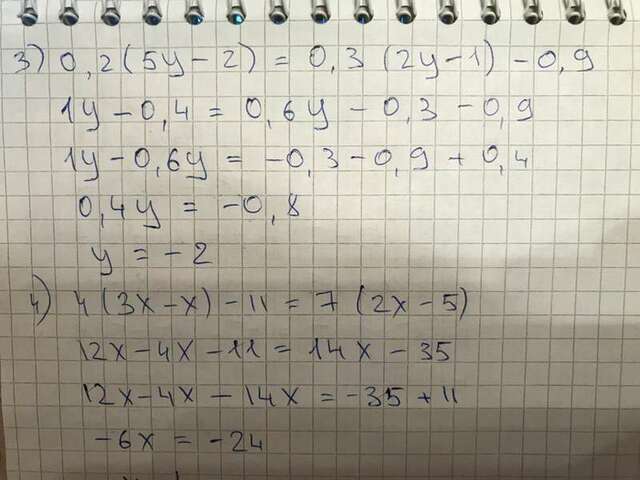 3) 0,2(5y-2) = 0,3 (2y-1) - 0,9
1y - 0,4 = 0,6y - 0,3 - 0,9
1y - 0,6y = -0,3 - 0,9 + 0,4
0,4y = -0,8
y = -2
4) 4(3x-x) - 11 = 7 (2x-5)
12x - 4x - 11 = 14x - 35
12x - 4x - 14x = -35 + 11
-6x = -24